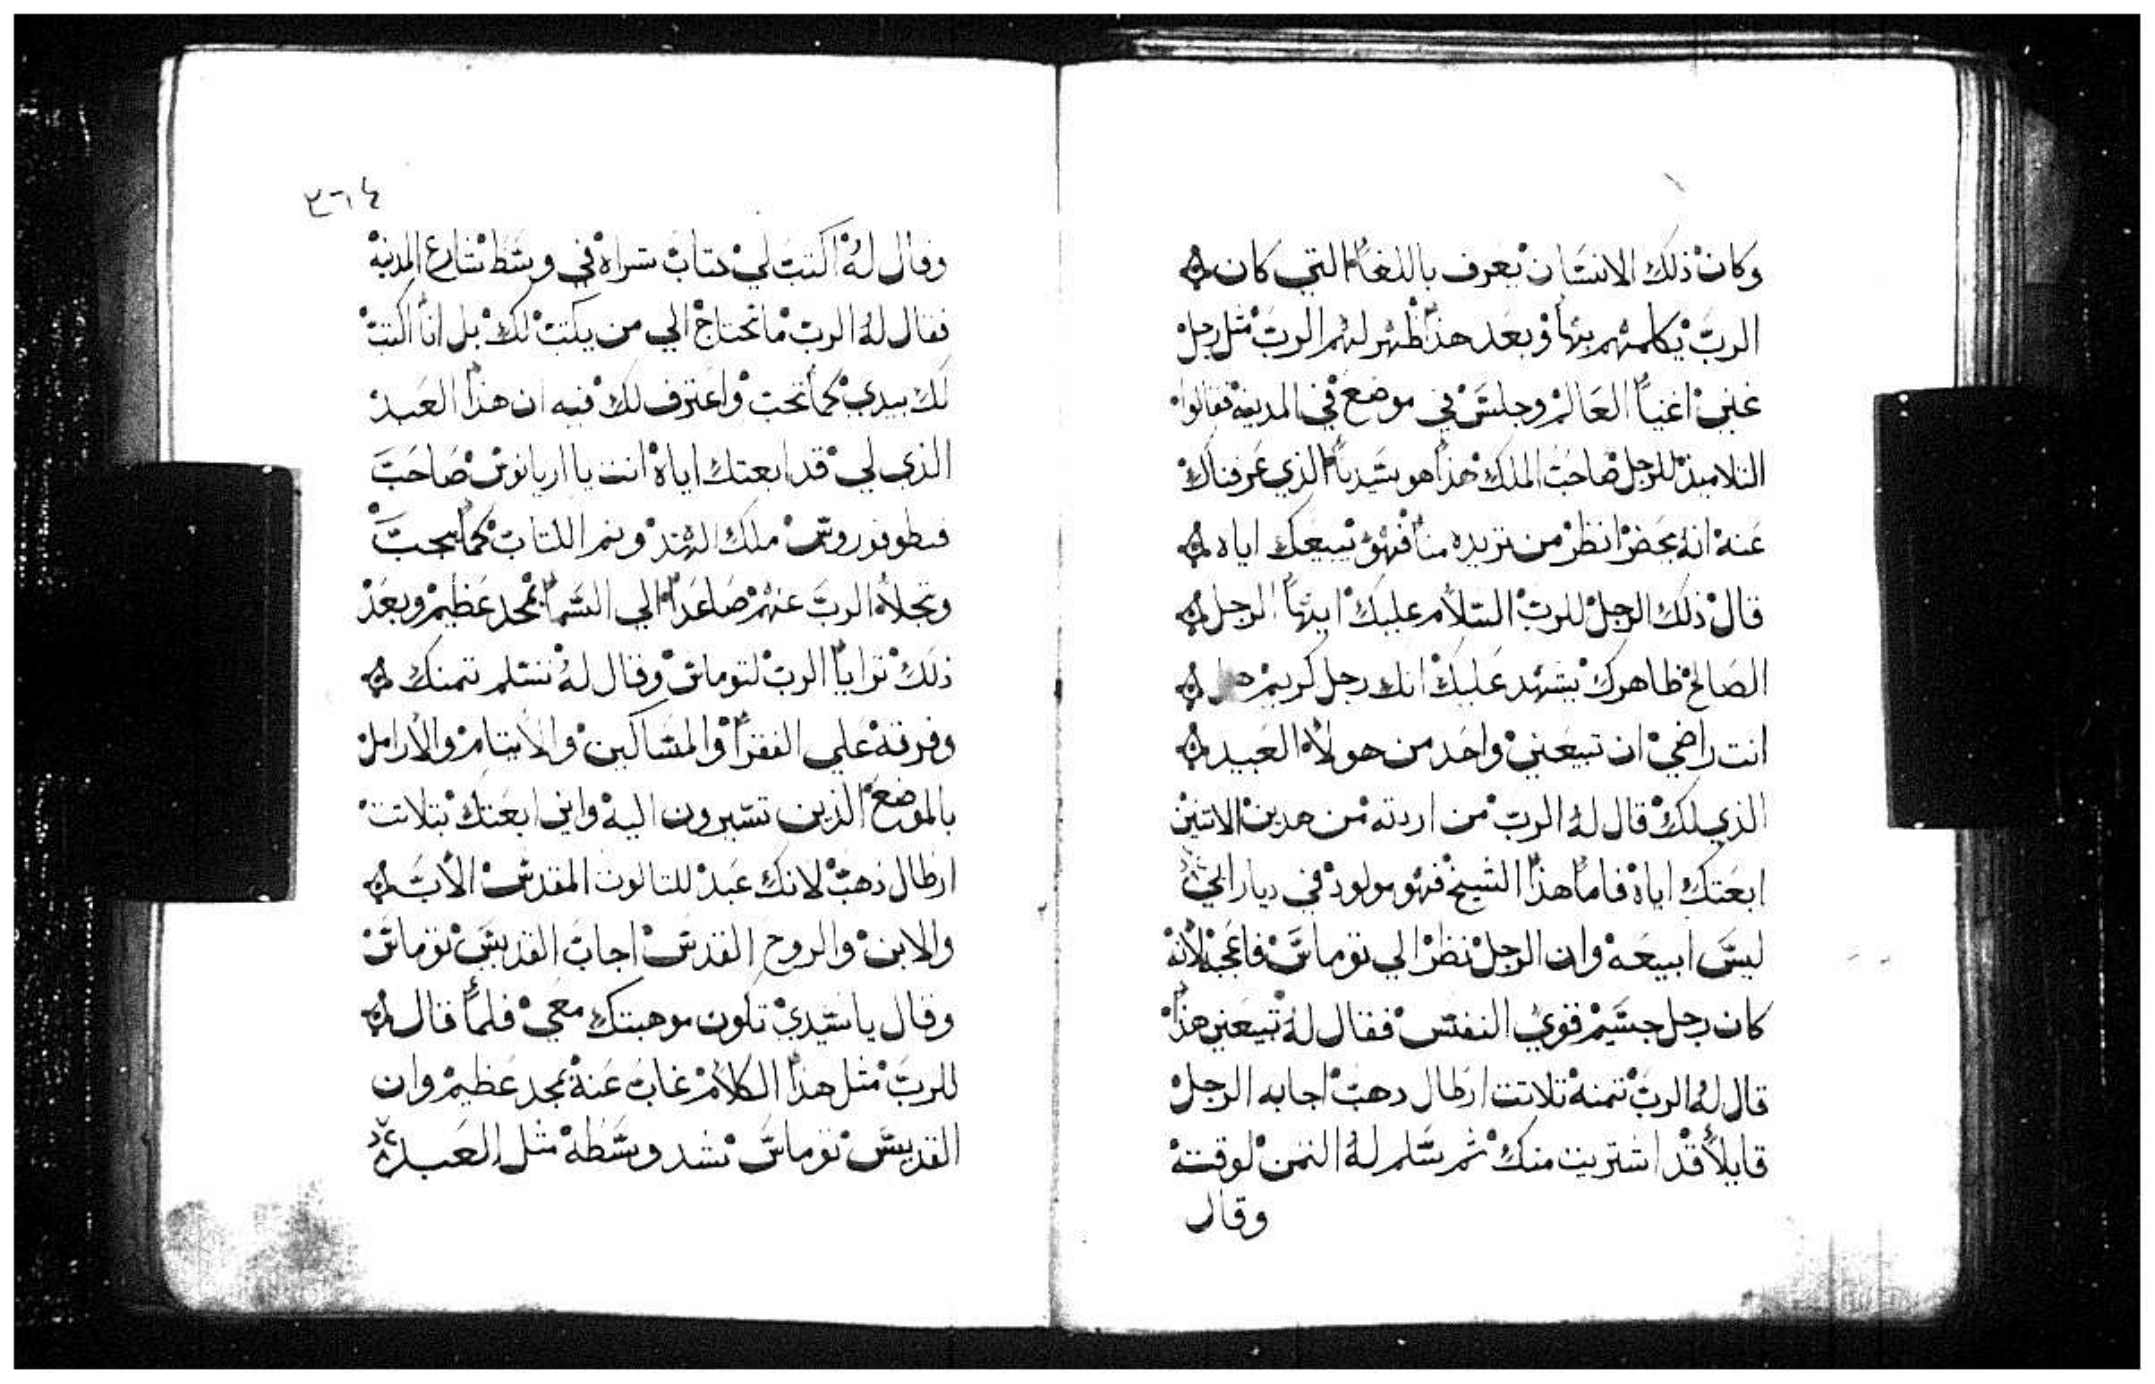 وكان ذلك الانسان يعرف باللغا التي كان
الرب يكلمهم بها وبعد هذا ظهر لهم الرب مثل رجل
غني اغنيا العالم وجلس في موضع في المدينه فقالوا
التلاميذ للرجل صاحب الملك هذا هو سيدنا الذي عرفناك
عنه انه يحضر انظر من تريده منا فهو يبيعك اياه
قال ذلك الرجل للرب السلام عليك ايها الرجل
الصالح ظاهرك يشهد عليك انك رجل كريم
انت راضي ان تبيعني واحد من هولاء العبيد
الذي لك قال له الرب من اردته من هدين الاتنين
ابعتك اياه فاما هذا الشيخ فهو مولود في ديار ابي
ليس ابيعه وان الرجل نظر الي توماس فاعجبه لانه
كان رجل جسيم قوي النفس فقال له تبيعني هذا
قال له الرب تمنه تلاتت ارطال دهب اجابه الرجل
قايلا قد اشتريت منك ثم سلم له التمن لوقته
وقال
٣٦٤
وقال له اكتب لي كتاب شراه في وسط شارع المدينه
فقال له الرب ما تحتاج الي من يكتب لك بل انا اكتب
لك بيدي كما تحب واعترف لك فيه ان هذا العبد
الذي لي قد ابعتك اياه انت يا اربانوس صاحب
قنطوفوروس ملك الهند وتم الكتاب كما يجب
وتجلا الرب عنهم صاعدا الي السما بمجد عظيم وبعد
ذلك ترايا الرب لتوماس وقال له تسلم تمنك
وفرقه علي الفقرا والمساكين والايتام والارامل
بالموضع الذين تسيرون اليه واني ابعتك بتلاتت
ارطال ذهب لانك عبد للتالوت المقدس الاب
والابن والروح القدس اجاب القديس توماس
وقال يا سيدي تكون موهبتك معي فلما قال
للرب مثل هذا الكلام غاب عنه بمجد عظيم وان
القديس توماس شد وسطه مثل العبد